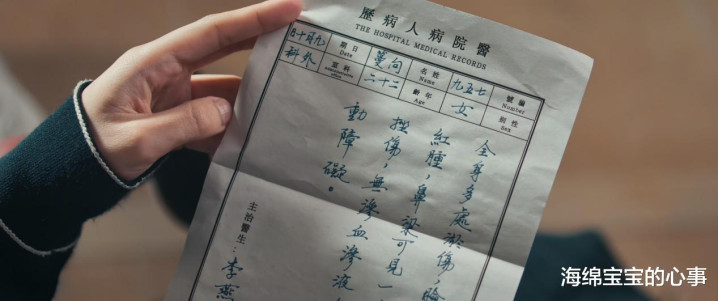 醫院病人病歷
THE HOSPITAL MEDICAL RECORDS
編號 Number 七五九
姓名 Name 向蔓
日期 Date 九月十日
性別 Sex 女
年齡 Age 二十二
科室 外科
全身多處淤傷，臉
紅腫，鼻梁可見一
挫傷，無滲血滲液
動障礙。
主治醫生：李燕
海绵宝宝的心事